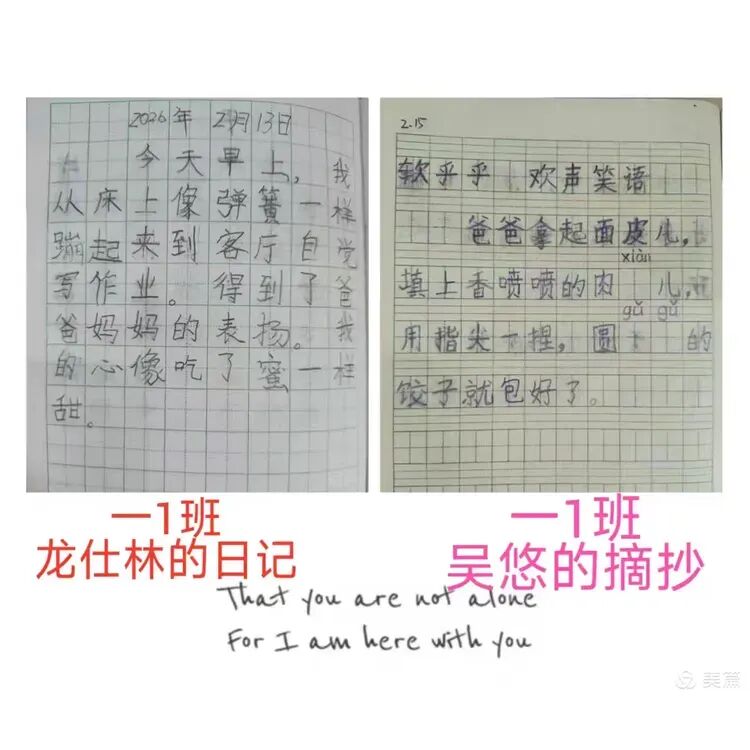 2026年 2月13日
今天早上，我
从床上像弹簧一样
蹦起来到客厅自觉
写作业。得到了爸
爸妈妈的表扬。我
的心像吃了蜜一样
甜。
2.15
软乎乎 欢声笑语
爸爸拿起面皮儿，
xiàn
填上香喷喷的肉 儿，
gǔ gǔ
用指尖一捏，圆 的
饺子就包好了。
一1班
龙仕林的日记
一1班
吴悠的摘抄
That you are not alone
For I am here with you
美篇